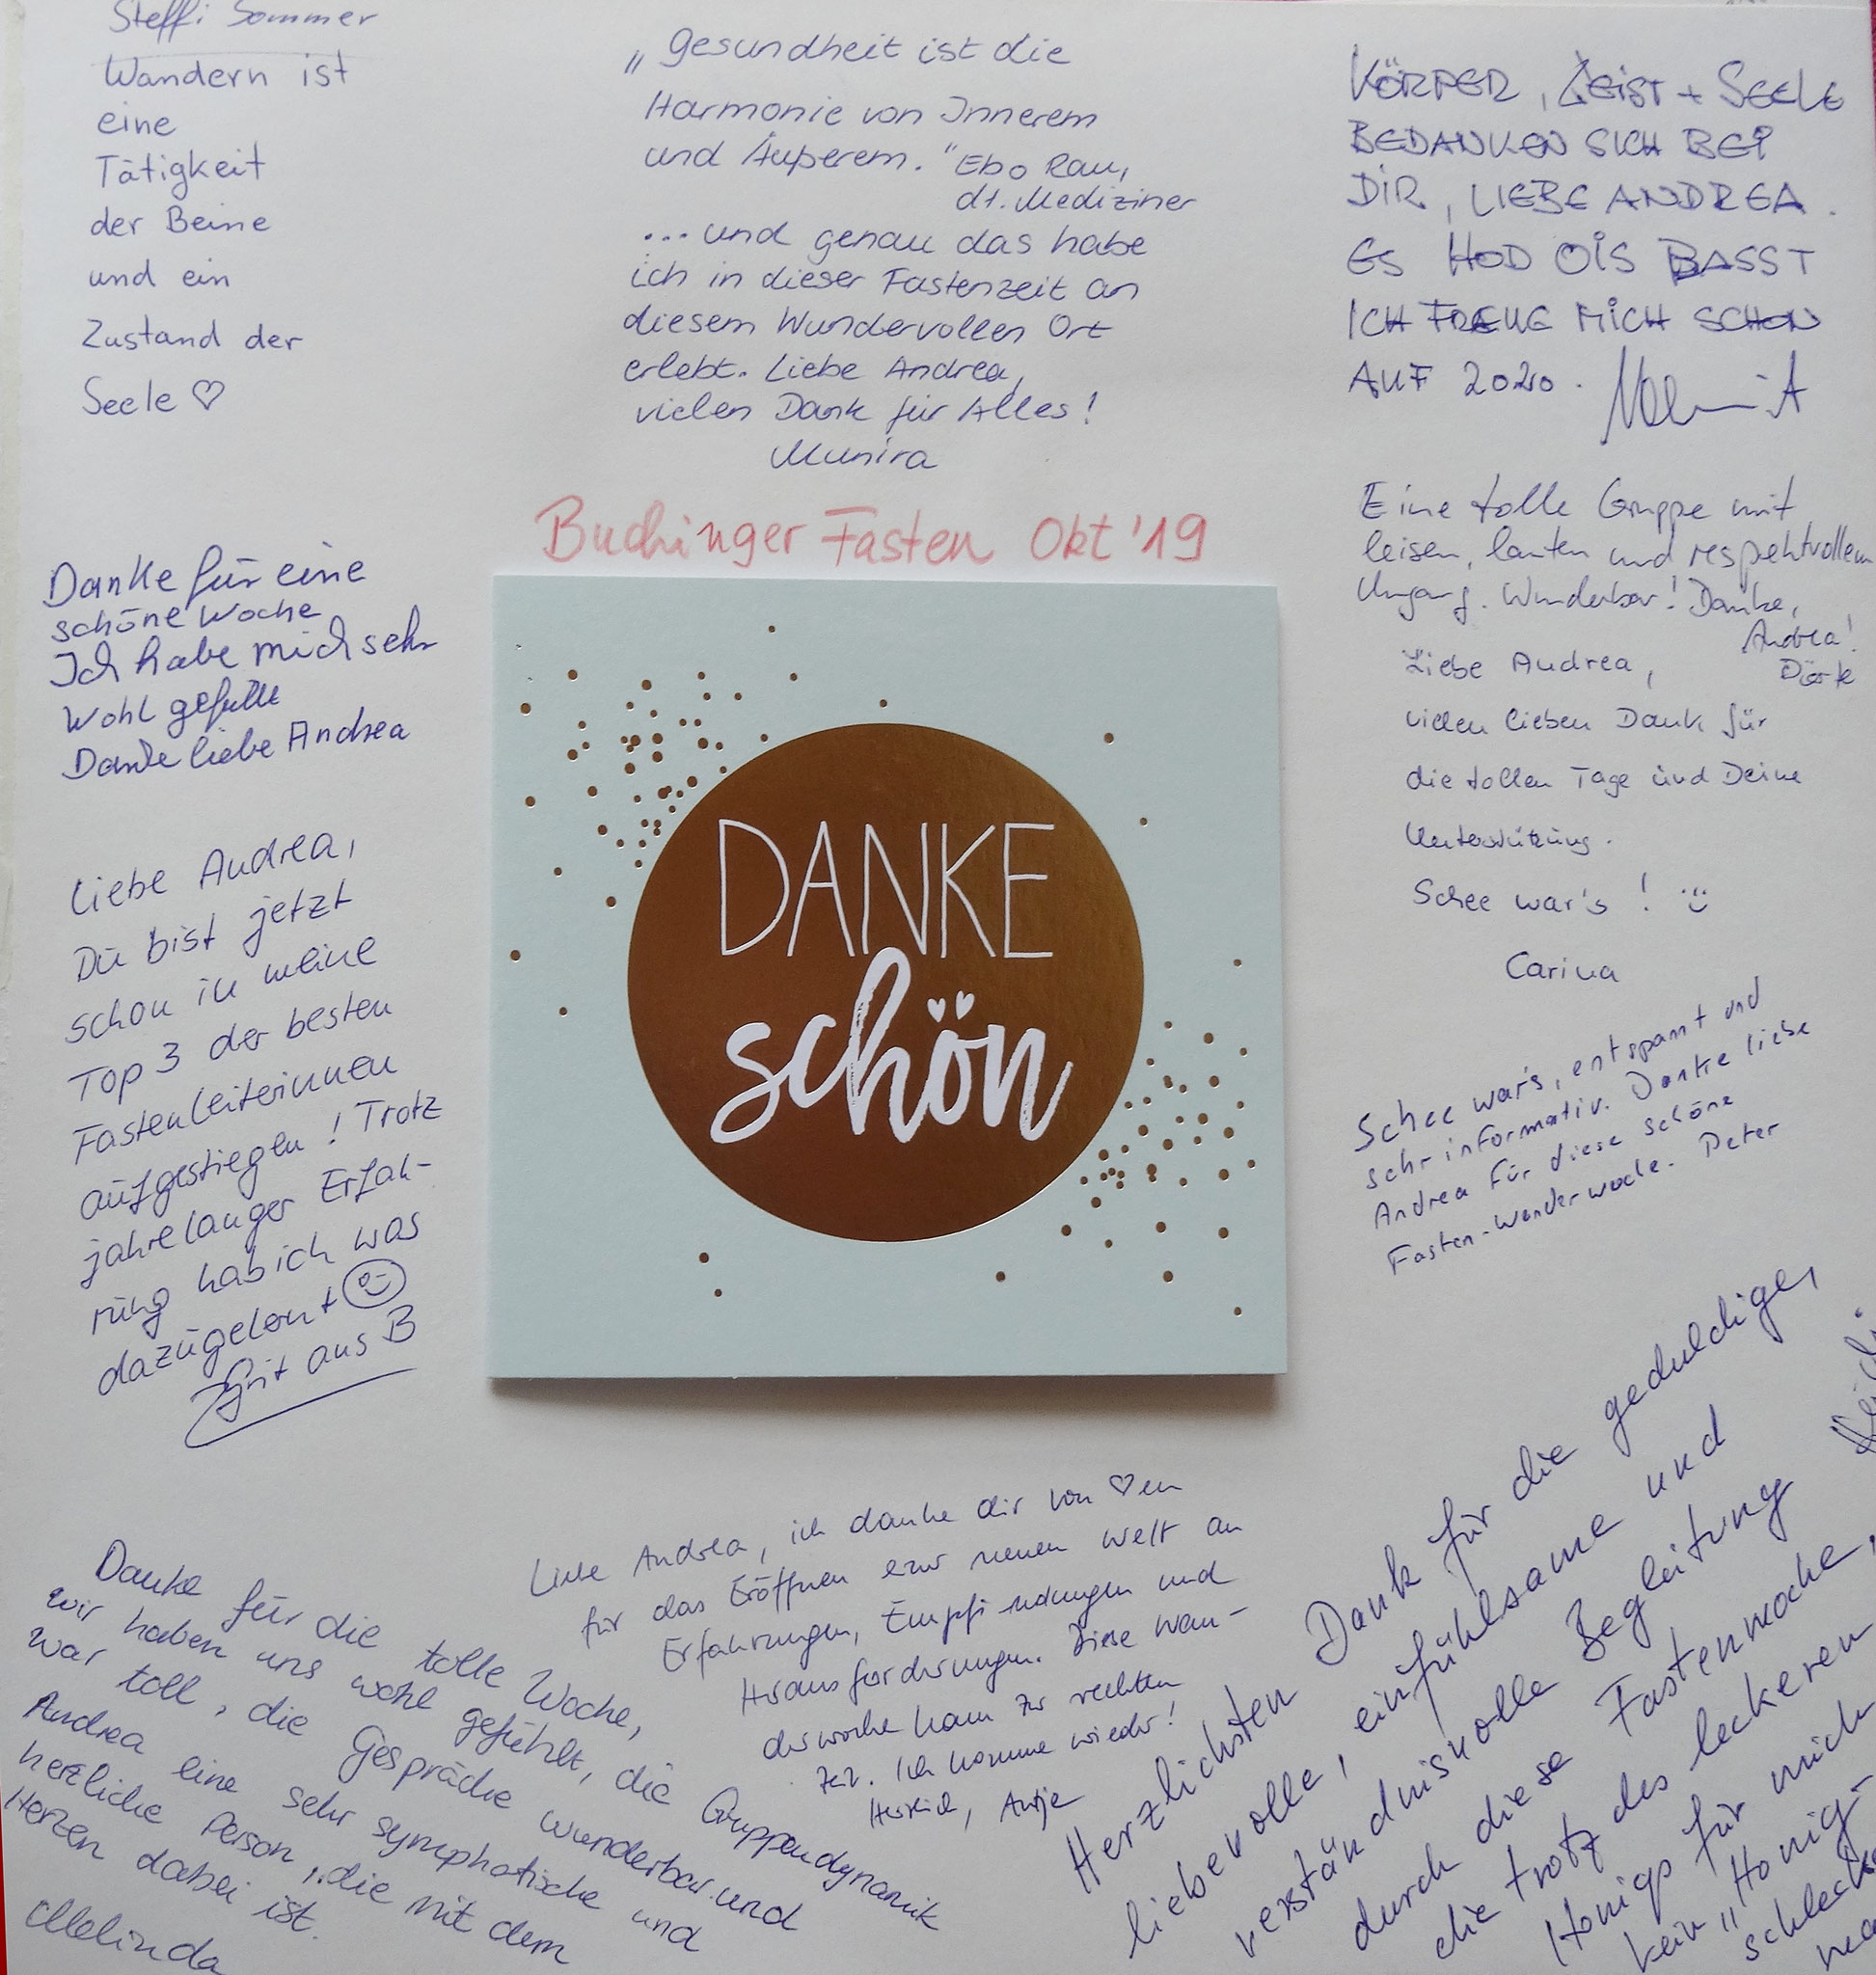 Steffi Sommer
Wandern ist
eine
Tätigkeit
der Beine
und ein
Zustand der
Seele ♡
„Gesundheit ist die
Harmonie von Innerem
und Äußerem." Ebo Rau,
dt. Mediziner
...und genau das habe
ich in dieser Fastenzeit an
diesem Wundervollen Ort
erlebt. Liebe Andrea,
vielen Dank für Alles!
Munira
KÖRPER, GEIST + SEELE
BEDANKEN SICH BEI
DIR, LIEBE ANDREA.
ES HOD OIS BASST
ICH FREUE MICH SCHON
AUF 2020.
Buchinger Fasten Okt '19
Danke für eine
schöne Woche
Ich habe mich sehr
wohl gefühlt
Danke liebe Andrea
Eine tolle Gruppe mit
leisen, lauten und respektvollem
Umgang. Wunderbar! Danke,
Andrea!
Dörte
Liebe Andrea,
vielen lieben Dank für
die tollen Tage und Deine
Unterstützung.
Schee war's! :)
Carina
DANKE
schön
Liebe Andrea,
Du bist jetzt
schon in meine
Top 3 der besten
Fastenleiterinnen
aufgestiegen! Trotz
jahrelanger Erfah-
rung hab ich was
dazugelernt
Grit aus B
Schee war's, entspannt und
sehr informativ. Danke liebe
Andrea für diese schöne
Fasten-Wanderwoche. Peter
Danke für die tolle Woche,
wir haben uns wohl gefühlt, die Gruppendynamik
war toll, die Gespräche wunderbar und
Andrea eine sehr symphatische und
herzliche Person, die mit dem
Herzen dabei ist.
Melinda
Liebe Andrea, ich danke dir von ♡en
für das Eröffnen einer neuen Welt an
Erfahrungen, Empfindungen und
Herausforderungen. Diese Wan-
derwoche kam zur rechten
Zeit. Ich komme wieder!
Herzlich, Antje
Herzlichsten Dank für die geduldige,
liebevolle, einfühlsame und
verständnisvolle Begleitung
durch diese Fastenwoche,
die trotz des leckeren
Honigs für mich
kein „Honig-
schleck